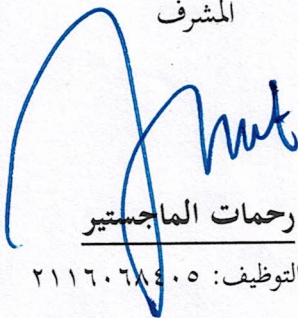 المشرف
رحمات الماجستير
التوظيف: ٢١١٦٠٦٨٤٠٥